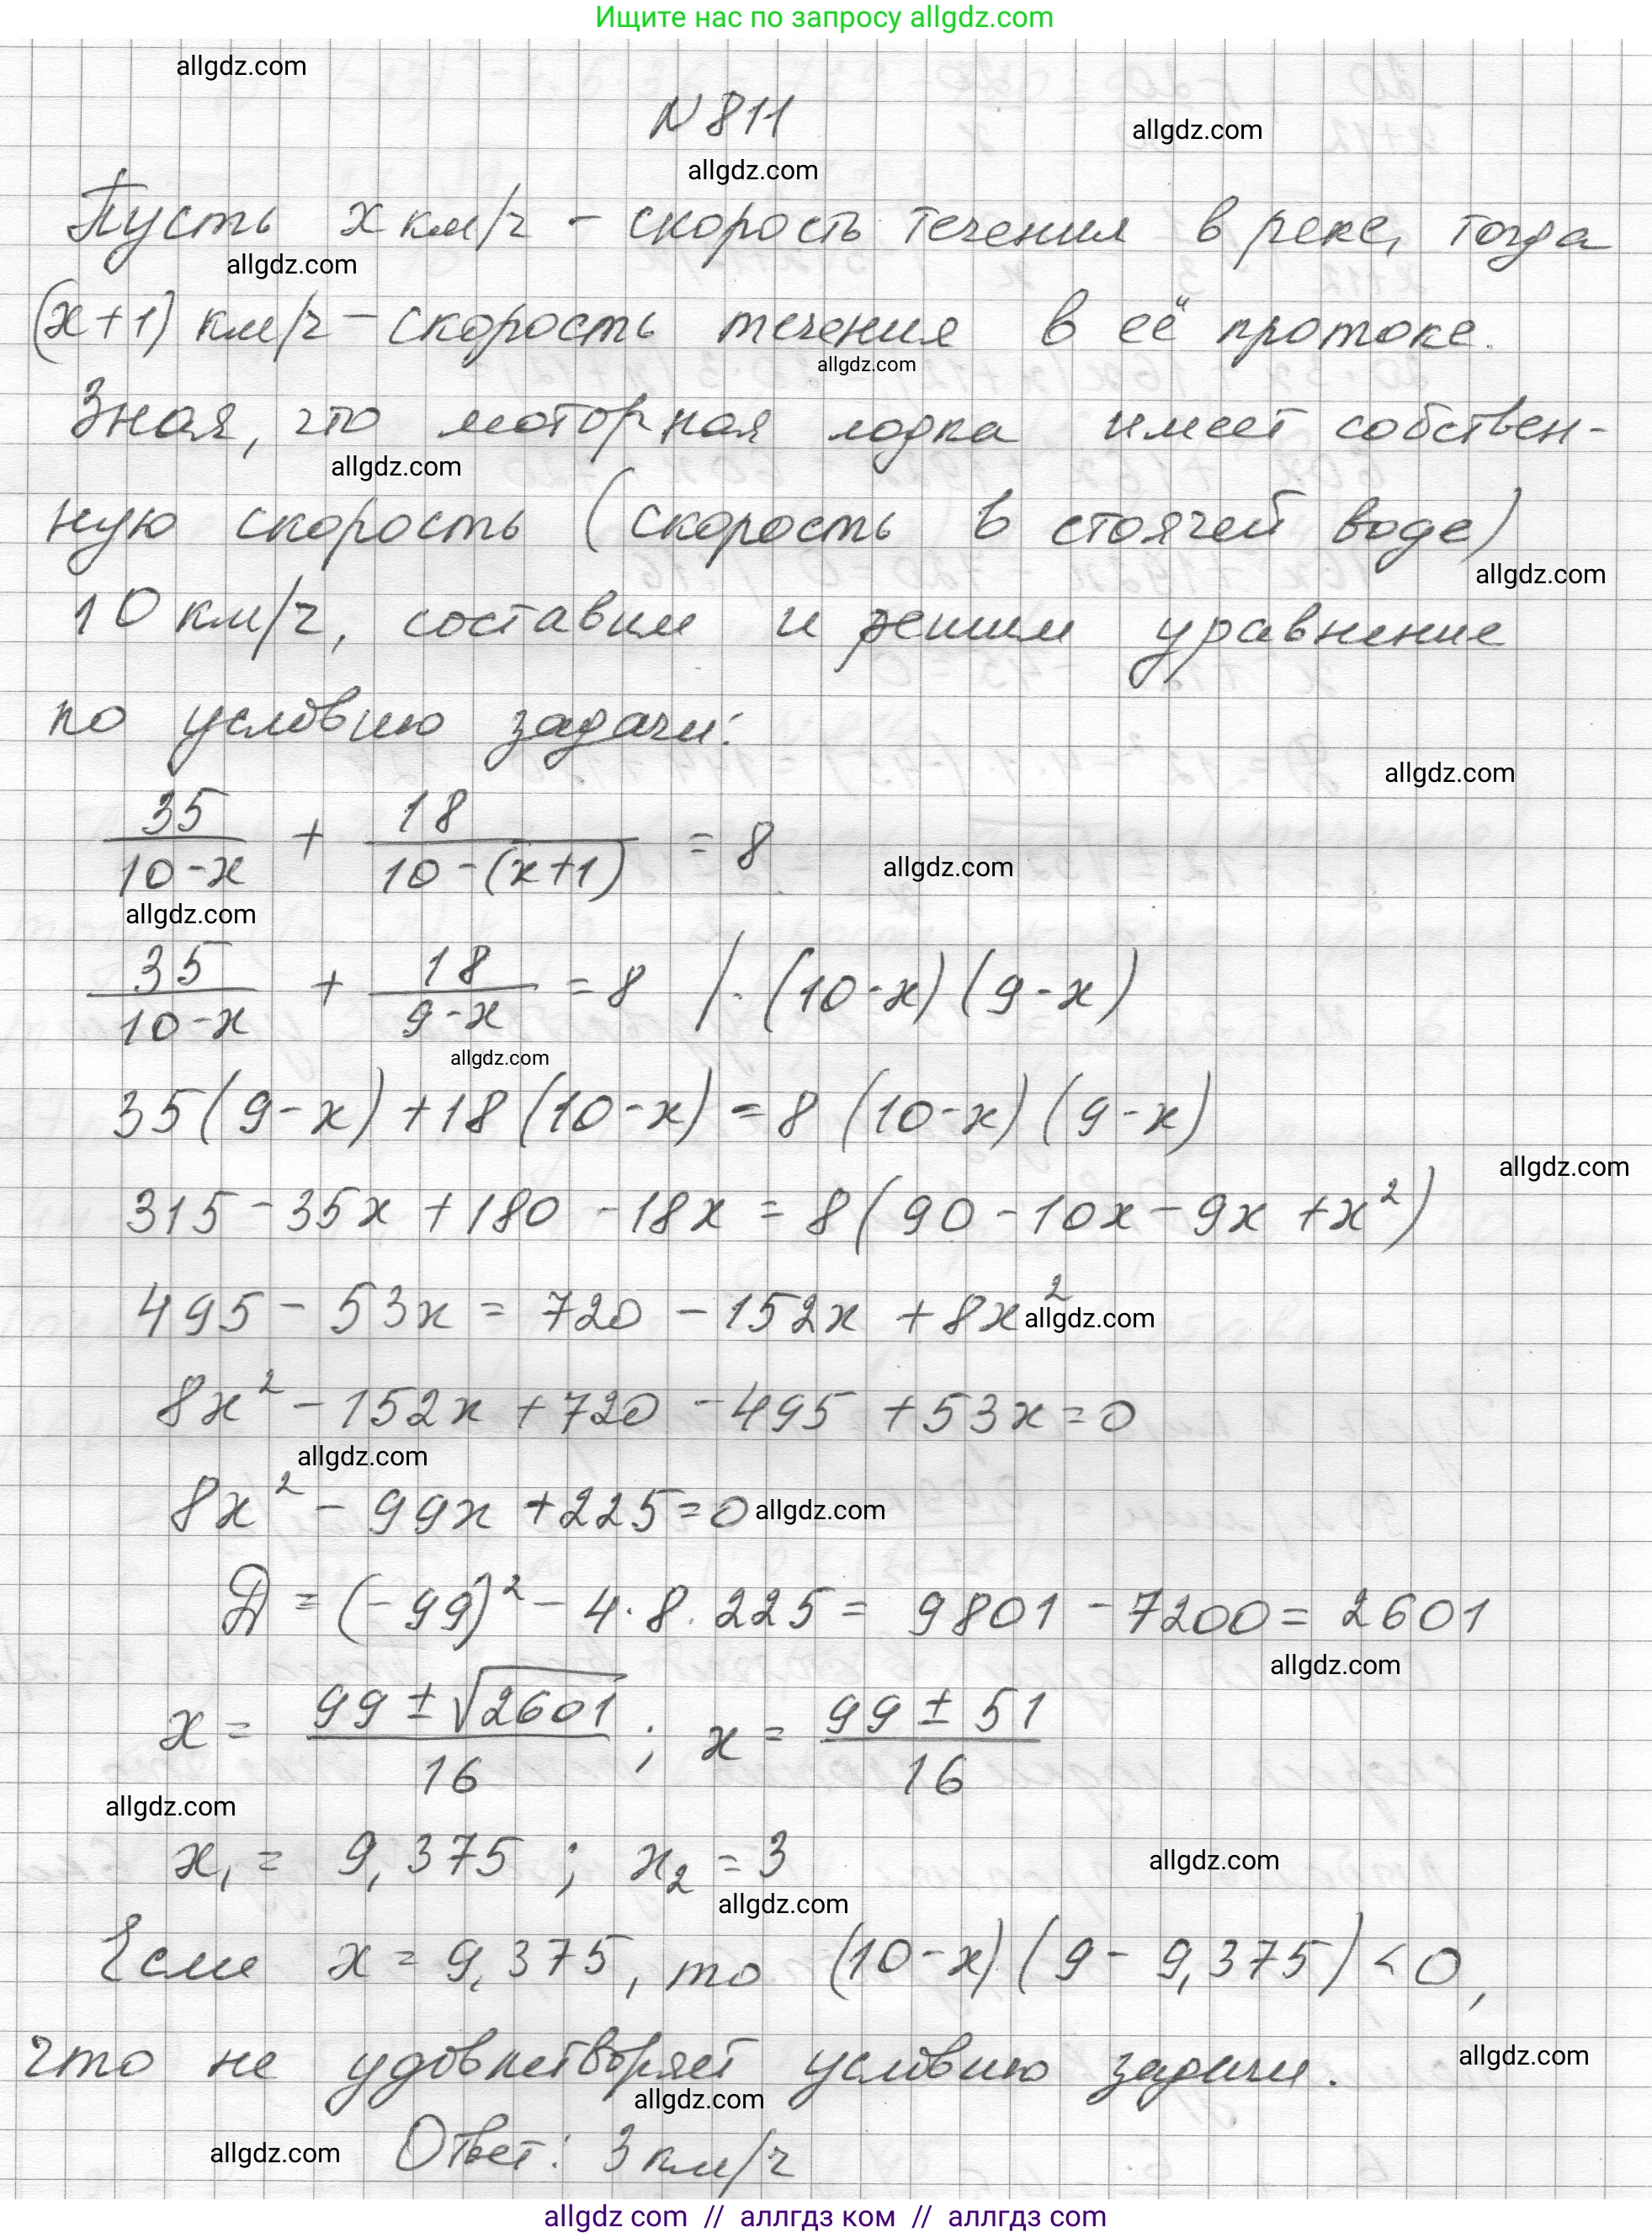 Ищите нас по запросу allgdz.com
allgdz.com
N 811
allgdz.com
allgdz.com
Пусть x км/ч - скорость течения в реке, тогда
allgdz.com
(x+1) км/ч - скорость течения в её протоке.
allgdz.com
Зная, что моторная лодка имеет собствен-
allgdz.com
ную скорость (скорость в стоячей воде)
allgdz.com
10 км/ч, составим и решим уравнение
по условию задачи:
allgdz.com
35/(10-x) + 18/(10-(x+1)) = 8
allgdz.com
allgdz.com
35/(10-x) + 18/(9-x) = 8 | · (10-x)(9-x)
allgdz.com
35(9-x)+18(10-x)=8(10-x)(9-x)
allgdz.com
315-35x+180-18x=8(90-10x-9x+x²)
495-53x=720-152x+8x²
allgdz.com
8x²-152x+720-495+53x=0
allgdz.com
8x²-99x+225=0
allgdz.com
Д=(-99)²-4·8·225=9801-7200=2601
allgdz.com
x=(99±√2601)/16; x=(99±51)/16
allgdz.com
x₁=9,375; x₂=3
allgdz.com
allgdz.com
Если x=9,375, то (10-x)(9-9,375)<0,
что не удовлетворяет условию задачи.
allgdz.com
allgdz.com
Ответ: 3 км/ч
allgdz.com
allgdz com // аллгдз ком // аллгдз com